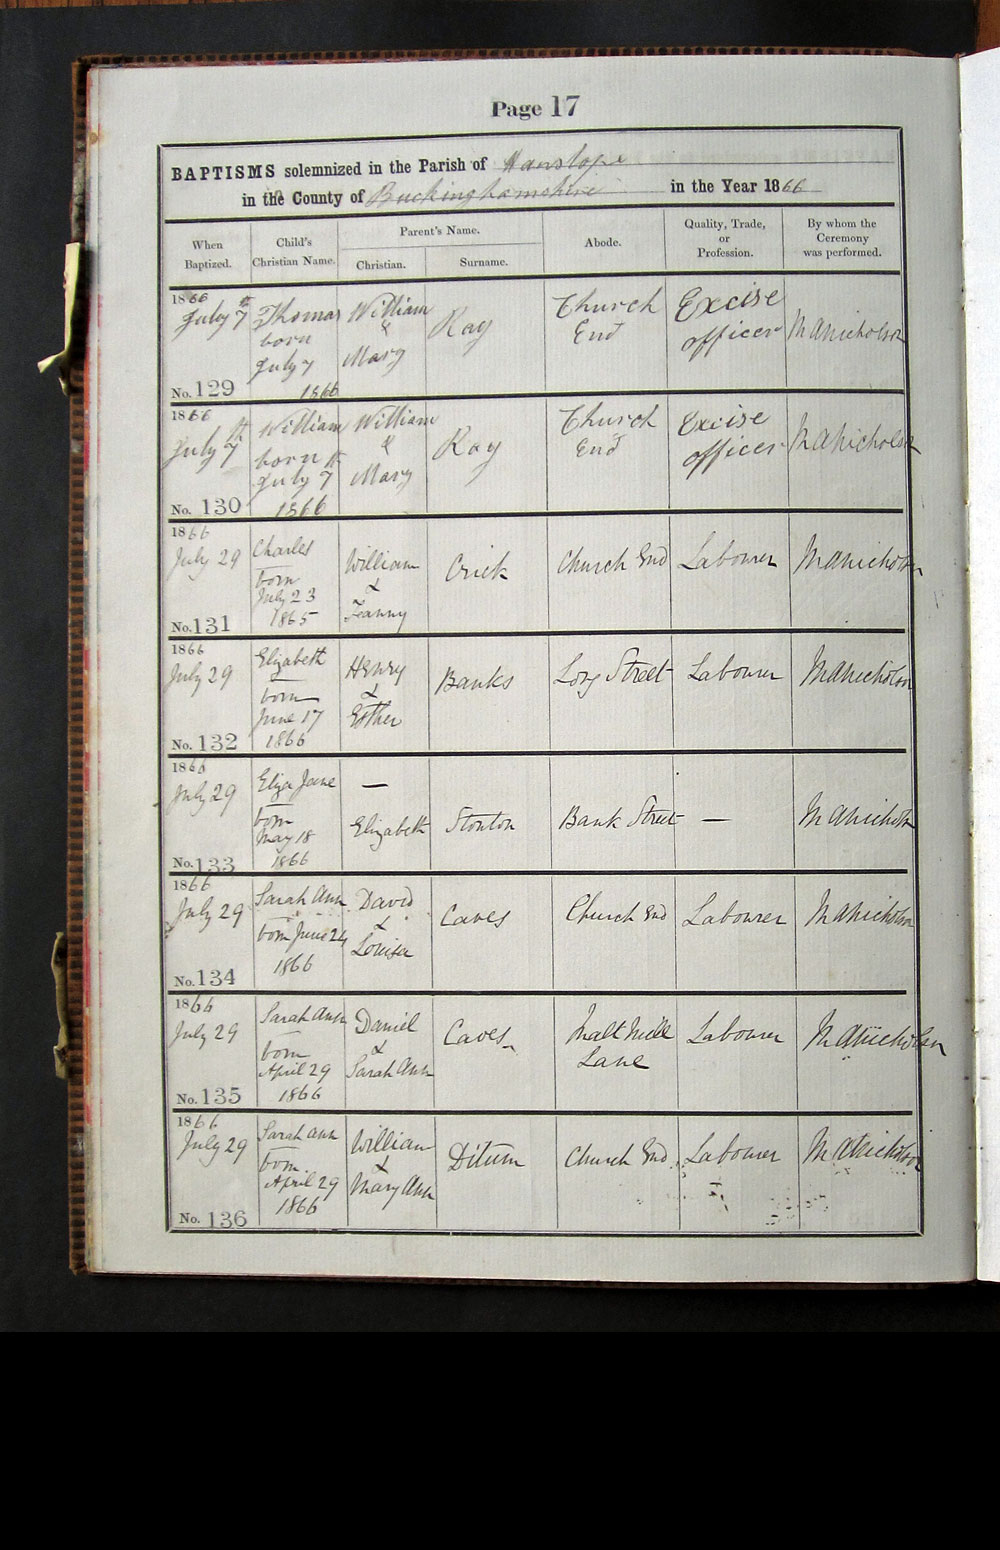 Page 17
BAPTISMS solemnized in the Parish of Hanslope
in the County of Buckinghamshire in the Year 1866
When Baptized.
Child's Christian Name.
Parent's Name.
Christian.
Surname.
Abode.
Quality, Trade, or Profession.
By whom the Ceremony was performed.
1866
July 7th
No. 129
Thomas
born
July 7
1866
William
&
Mary
Ray
Church
End
Excise
officer
M A Nicholson
1866
July 7th
No. 130
William
born
July 7th
1866
William
&
Mary
Ray
Church
End
Excise
officer
M A Nicholson
1866
July 29
No. 131
Charles
born
July 23
1865
William
&
Fanny
Crick
Church End
Labourer
M A Nicholson
1866
July 29
No. 132
Elizabeth
born
June 17
1866
Henry
&
Esther
Banks
Long Street
Labourer
M A Nicholson
1866
July 29
No. 133
Eliza Jane
born
May 18
1866
—
Elizabeth
Stonton
Bank Street
—
M A Nicholson
1866
July 29
No. 134
Sarah Ann
born June 24
1866
David
&
Louisa
Caves
Church End
Labourer
M A Nicholson
1866
July 29
No. 135
Sarah Ann
born
April 29
1866
Daniel
&
Sarah Ann
Caves
Malt Mill
Lane
Labourer
M A Nicholson
1866
July 29
No. 136
Sarah Ann
born
April 29
1866
William
&
Mary Ann
Ditum
Church End
Labourer
M A Nicholson